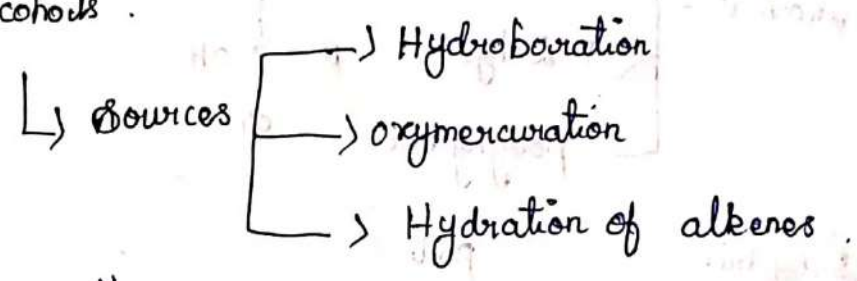 cohols .
↳ sources
→ Hydroboration
→ oxymercuration
→ Hydration of alkenes .